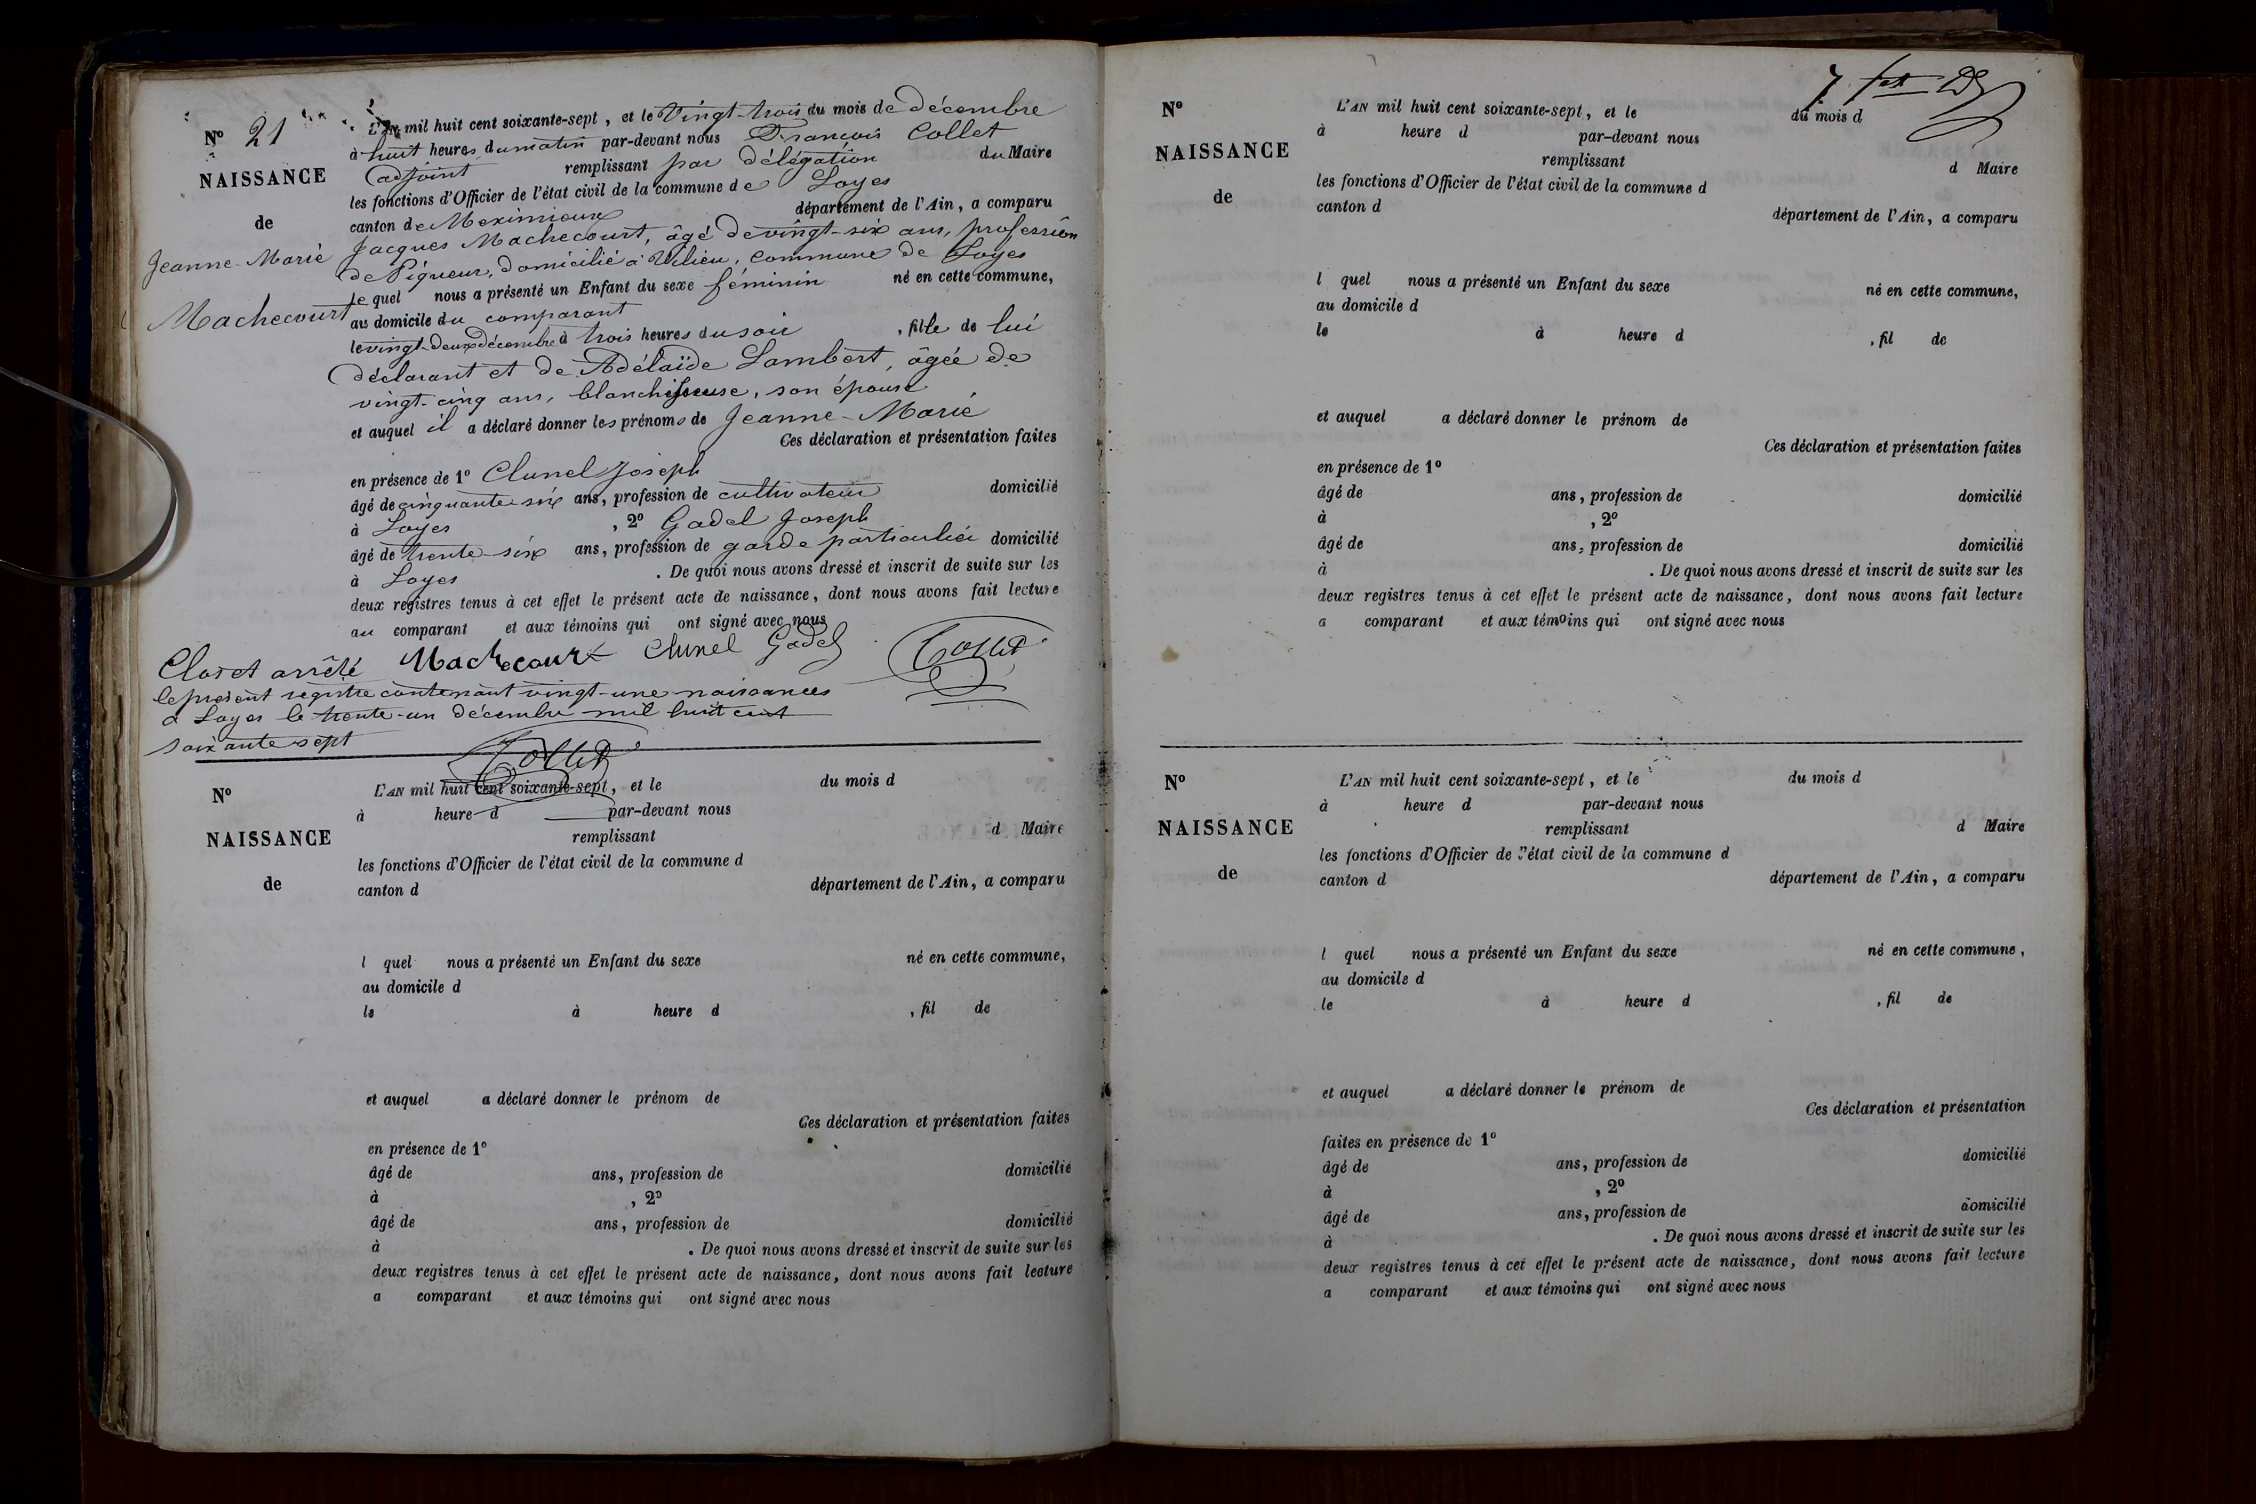 N° 21
NAISSANCE
de
Jeanne-Marie
Machecourt
L'AN mil huit cent soixante-sept, et le Vingt-trois du mois de Décembre
à huit heures du matin par-devant nous François Collet
adjoint remplissant par délégation du Maire
les fonctions d'Officier de l'état civil de la commune de Loyes
canton de Meximieux département de l'Ain, a comparu
Jacques Machecourt, âgé de vingt-six ans, profession
de Piqueur, domicilié à Vilieu, commune de Loyes
lequel nous a présenté un Enfant du sexe féminin né en cette commune,
au domicile du comparant
le vingt-deux décembre à trois heures du soir, fille de lui
déclarant et de Adélaïde Lambert, âgée de
vingt-cinq ans, blanchisseuse, son épouse
et auquel il a déclaré donner les prénoms de Jeanne-Marie
Ces déclaration et présentation faites
en présence de 1° Clunel Joseph
âgé de cinquante-six ans, profession de cultivateur domicilié
à Loyes , 2° Gadel Joseph
âgé de trente-six ans, profession de garde particulier domicilié
à Loyes . De quoi nous avons dressé et inscrit de suite sur les
deux registres tenus à cet effet le présent acte de naissance, dont nous avons fait lecture
au comparant et aux témoins qui ont signé avec nous
Machecourt Clunel Gadel Collet
Clos et arrêté
le présent registre contenant vingt-une naissances
à Loyes le trente-un décembre mil huit cent
soixante sept
Collet
N°
NAISSANCE
de
L'AN mil huit cent soixante-sept, et le du mois d
à heure d par-devant nous
remplissant d Maire
les fonctions d'Officier de l'état civil de la commune d
canton d département de l'Ain, a comparu
l quel nous a présenté un Enfant du sexe né en cette commune,
au domicile d
le à heure d , fil de
et auquel a déclaré donner le prénom de
Ces déclaration et présentation faites
en présence de 1°
âgé de ans, profession de domicilié
à , 2°
âgé de ans, profession de domicilié
à . De quoi nous avons dressé et inscrit de suite sur les
deux registres tenus à cet effet le présent acte de naissance, dont nous avons fait lecture
a comparant et aux témoins qui ont signé avec nous
N°
NAISSANCE
de
L'AN mil huit cent soixante-sept, et le du mois d
à heure d par-devant nous
remplissant d Maire
les fonctions d'Officier de l'état civil de la commune d
canton d département de l'Ain, a comparu
l quel nous a présenté un Enfant du sexe né en cette commune,
au domicile d
le à heure d , fil de
et auquel a déclaré donner le prénom de
Ces déclaration et présentation faites
en présence de 1°
âgé de ans, profession de domicilié
à , 2°
âgé de ans, profession de domicilié
à . De quoi nous avons dressé et inscrit de suite sur les
deux registres tenus à cet effet le présent acte de naissance, dont nous avons fait lecture
a comparant et aux témoins qui ont signé avec nous
N°
NAISSANCE
de
L'AN mil huit cent soixante-sept, et le du mois d
à heure d par-devant nous
remplissant d Maire
les fonctions d'Officier de l'état civil de la commune d
canton d département de l'Ain, a comparu
l quel nous a présenté un Enfant du sexe né en cette commune,
au domicile d
le à heure d , fil de
et auquel a déclaré donner le prénom de
Ces déclaration et présentation
faites en présence de 1°
âgé de ans, profession de domicilié
à , 2°
âgé de ans, profession de domicilié
à . De quoi nous avons dressé et inscrit de suite sur les
deux registres tenus à cet effet le présent acte de naissance, dont nous avons fait lecture
a comparant et aux témoins qui ont signé avec nous